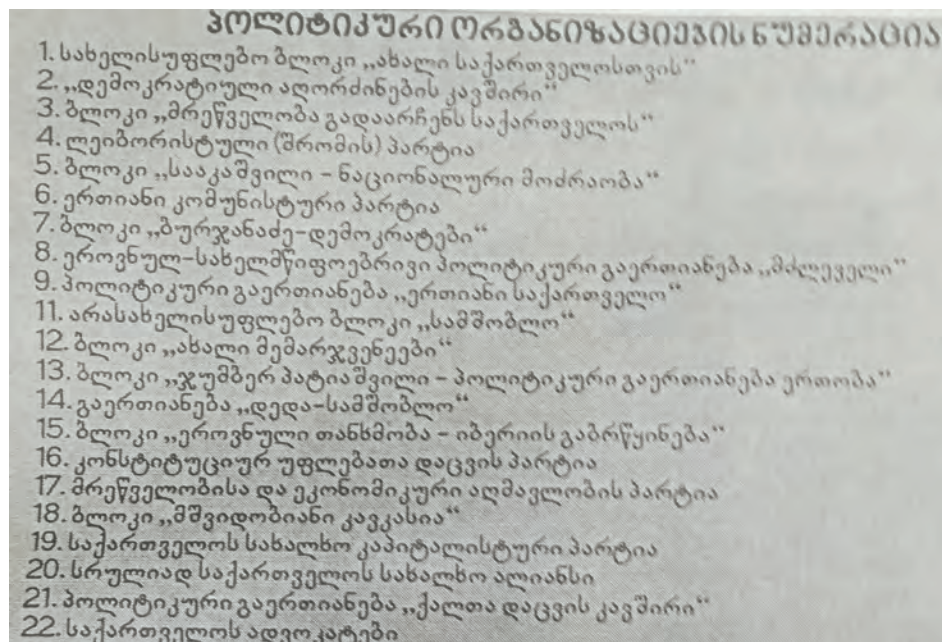 პოლიტიკური ორგანიზაციების ნუმერაცია
1. სახელისუფლებო ბლოკი „ახალი საქართველოსთვის“
2. „დემოკრატიული აღორძინების კავშირი“
3. ბლოკი „მრეწველობა გადაარჩენს საქართველოს“
4. ლეიბორისტული (შრომის) პარტია
5. ბლოკი „სააკაშვილი – ნაციონალური მოძრაობა“
6. ერთიანი კომუნისტური პარტია
7. ბლოკი „ბურჯანაძე-დემოკრატები“
8. ეროვნულ-სახელმწიფოებრივი პოლიტიკური გაერთიანება „მძლეველი“
9. პოლიტიკური გაერთიანება „ერთიანი საქართველო“
11. არასახელისუფლებო ბლოკი „სამშობლო“
12. ბლოკი „ახალი მემარჯვენეები“
13. ბლოკი „ჯუმბერ პატიაშვილი – პოლიტიკური გაერთიანება ერთობა“
14. გაერთიანება „დედა-სამშობლო“
15. ბლოკი „ეროვნული თანხმობა – იბერიის გაბრწყინება“
16. კონსტიტუციურ უფლებათა დაცვის პარტია
17. მრეწველობისა და ეკონომიკური აღმავლობის პარტია
18. ბლოკი „მშვიდობიანი კავკასია“
19. საქართველოს სახალხო კაპიტალისტური პარტია
20. სრულიად საქართველოს სახალხო ალიანსი
21. პოლიტიკური გაერთიანება „ქალთა დაცვის კავშირი“
22. საქართველოს ადვოკატები